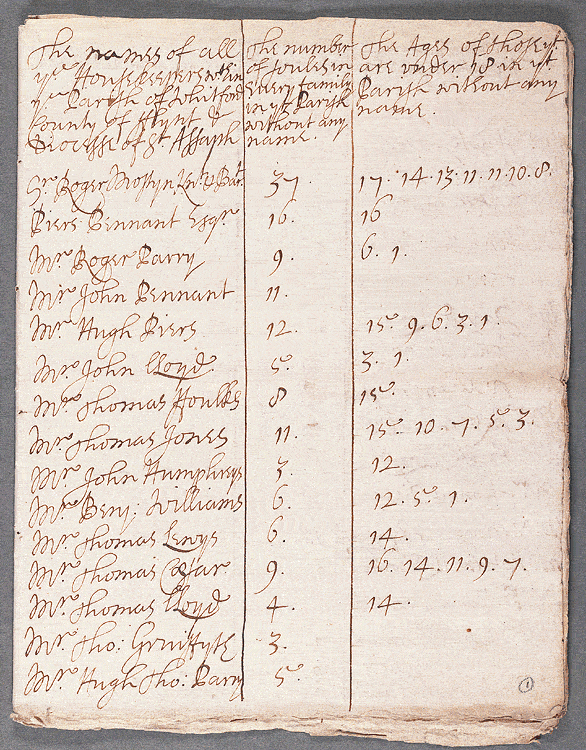 The names of all
ye Housekeepers within
ye Parish of Whitford
County of Flynt &
Diocesse of St Assaph
The number
of soules in
every family
in yt Parish
without any
name.
The Ages of those yt
are under 18 in yt
Parish without any
name.
Sr. Roger Mostyn Knt. & Bart. 37. 17. 14. 13. 11. 11. 10. 8.
Piers Pennant Esqr. 16. 16
Mr. Roger Parry 9. 6. 1.
Mr. John Pennant 11.
Mr. Hugh Piers 12. 15. 9. 6. 3. 1.
Mr. John Lloyd. 5. 3. 1.
Mr. Thomas Foulkes 8 15.
Mr. Thomas Jones 11. 15. 10. 7. 5. 3.
Mr. John Humphreys 3. 12.
Mr. Benj. Williams 6. 12. 5. 1.
Mr. Thomas Lewys 6. 14.
Mr. Thomas 9. 16. 14. 11. 9. 7.
Mr. Thomas Lloyd 4. 14.
Mr. Tho: Gruffyth 3.
Mr. Hugh Tho: Parry 5.
1